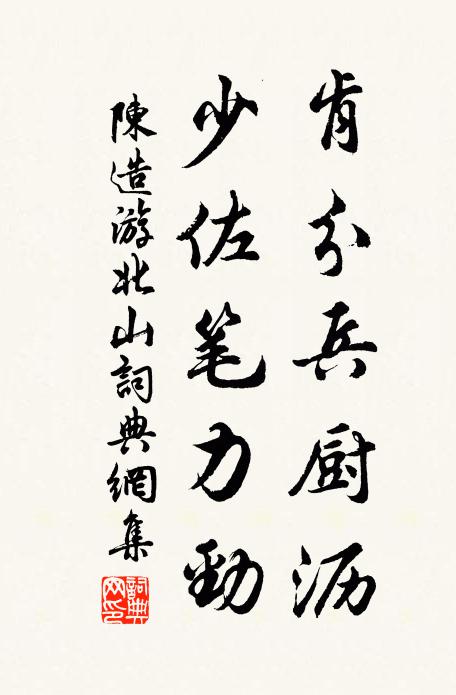 肯分兵厨沥
少佐笔力勁
陳造游北山詞典網集
詞典網印